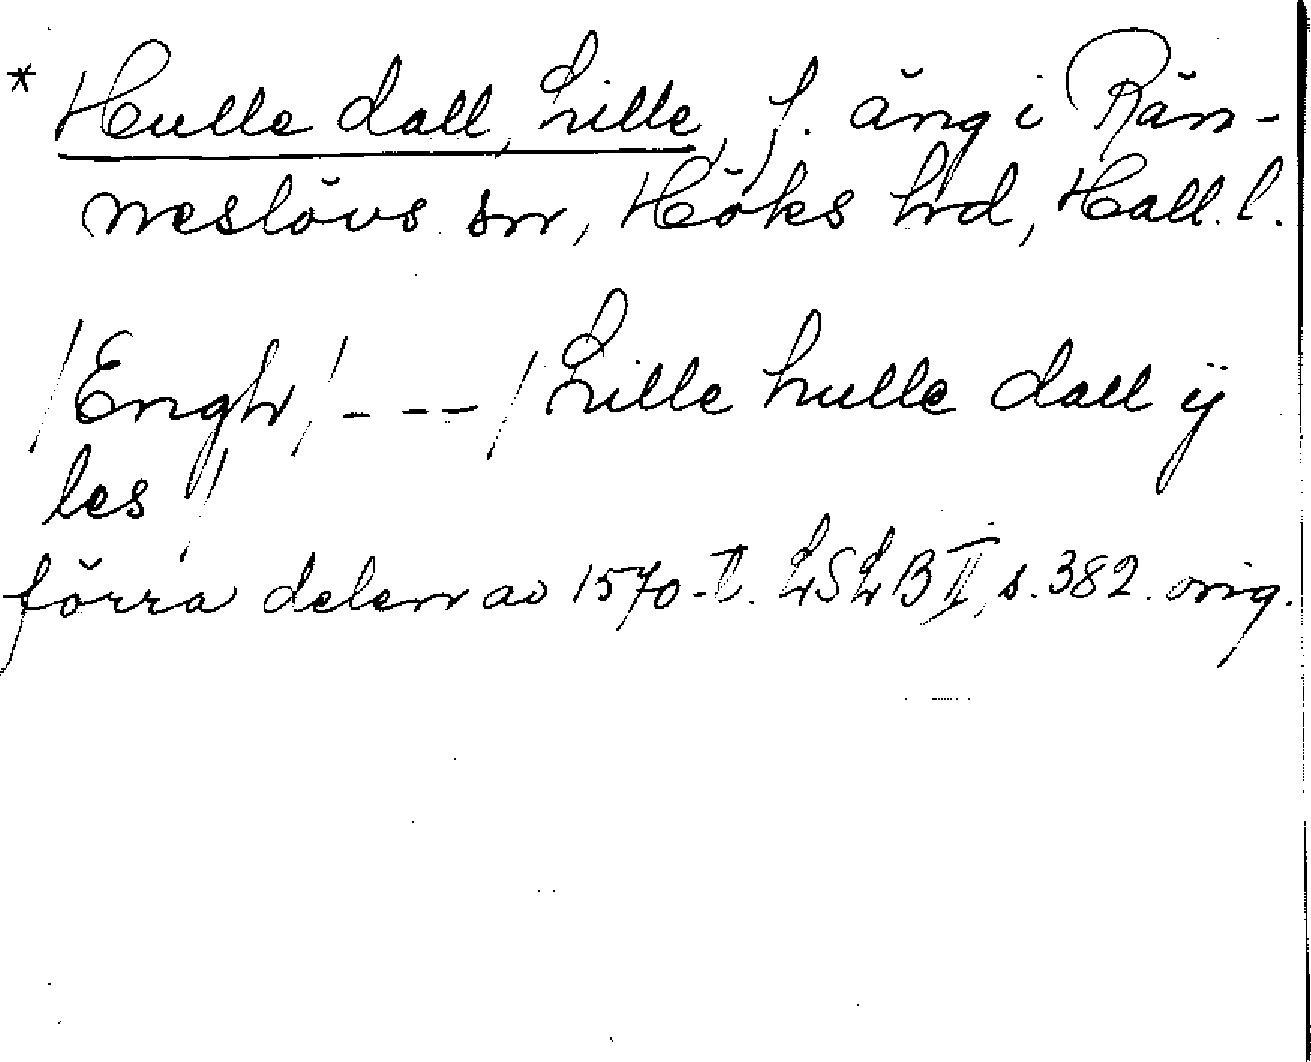 * Hulle dall, Lille, f. äng i Rän-
neslövs sn, Höks hrd, Hall. l.
/Engh/ - - - /Lille hulle dall ij
les/
förra delen av 1570-t. LSLB II, s. 382. orig.